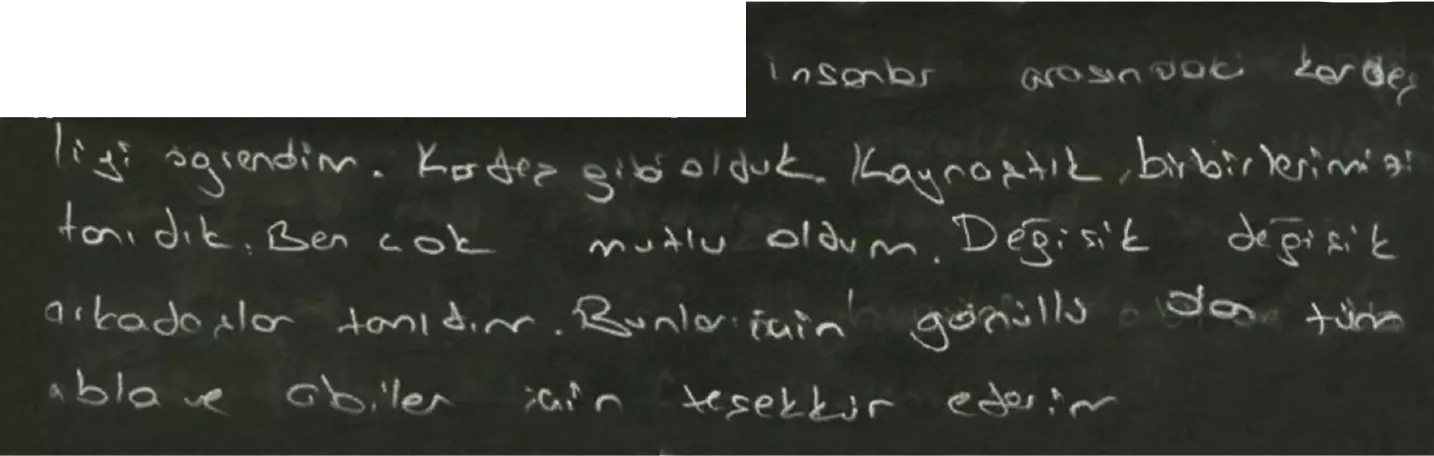 insanlar arasındaki kardeş
liği ögrendim. Kardeş gibi olduk. Kaynaştık, birbirlerimizi
tanıdık. Ben cok mutlu oldum. Değisik değisik
arkadaşlar tanıdım. Bunlar için gönüllü olan tüm
abla ve abiler için teşekkür ederim